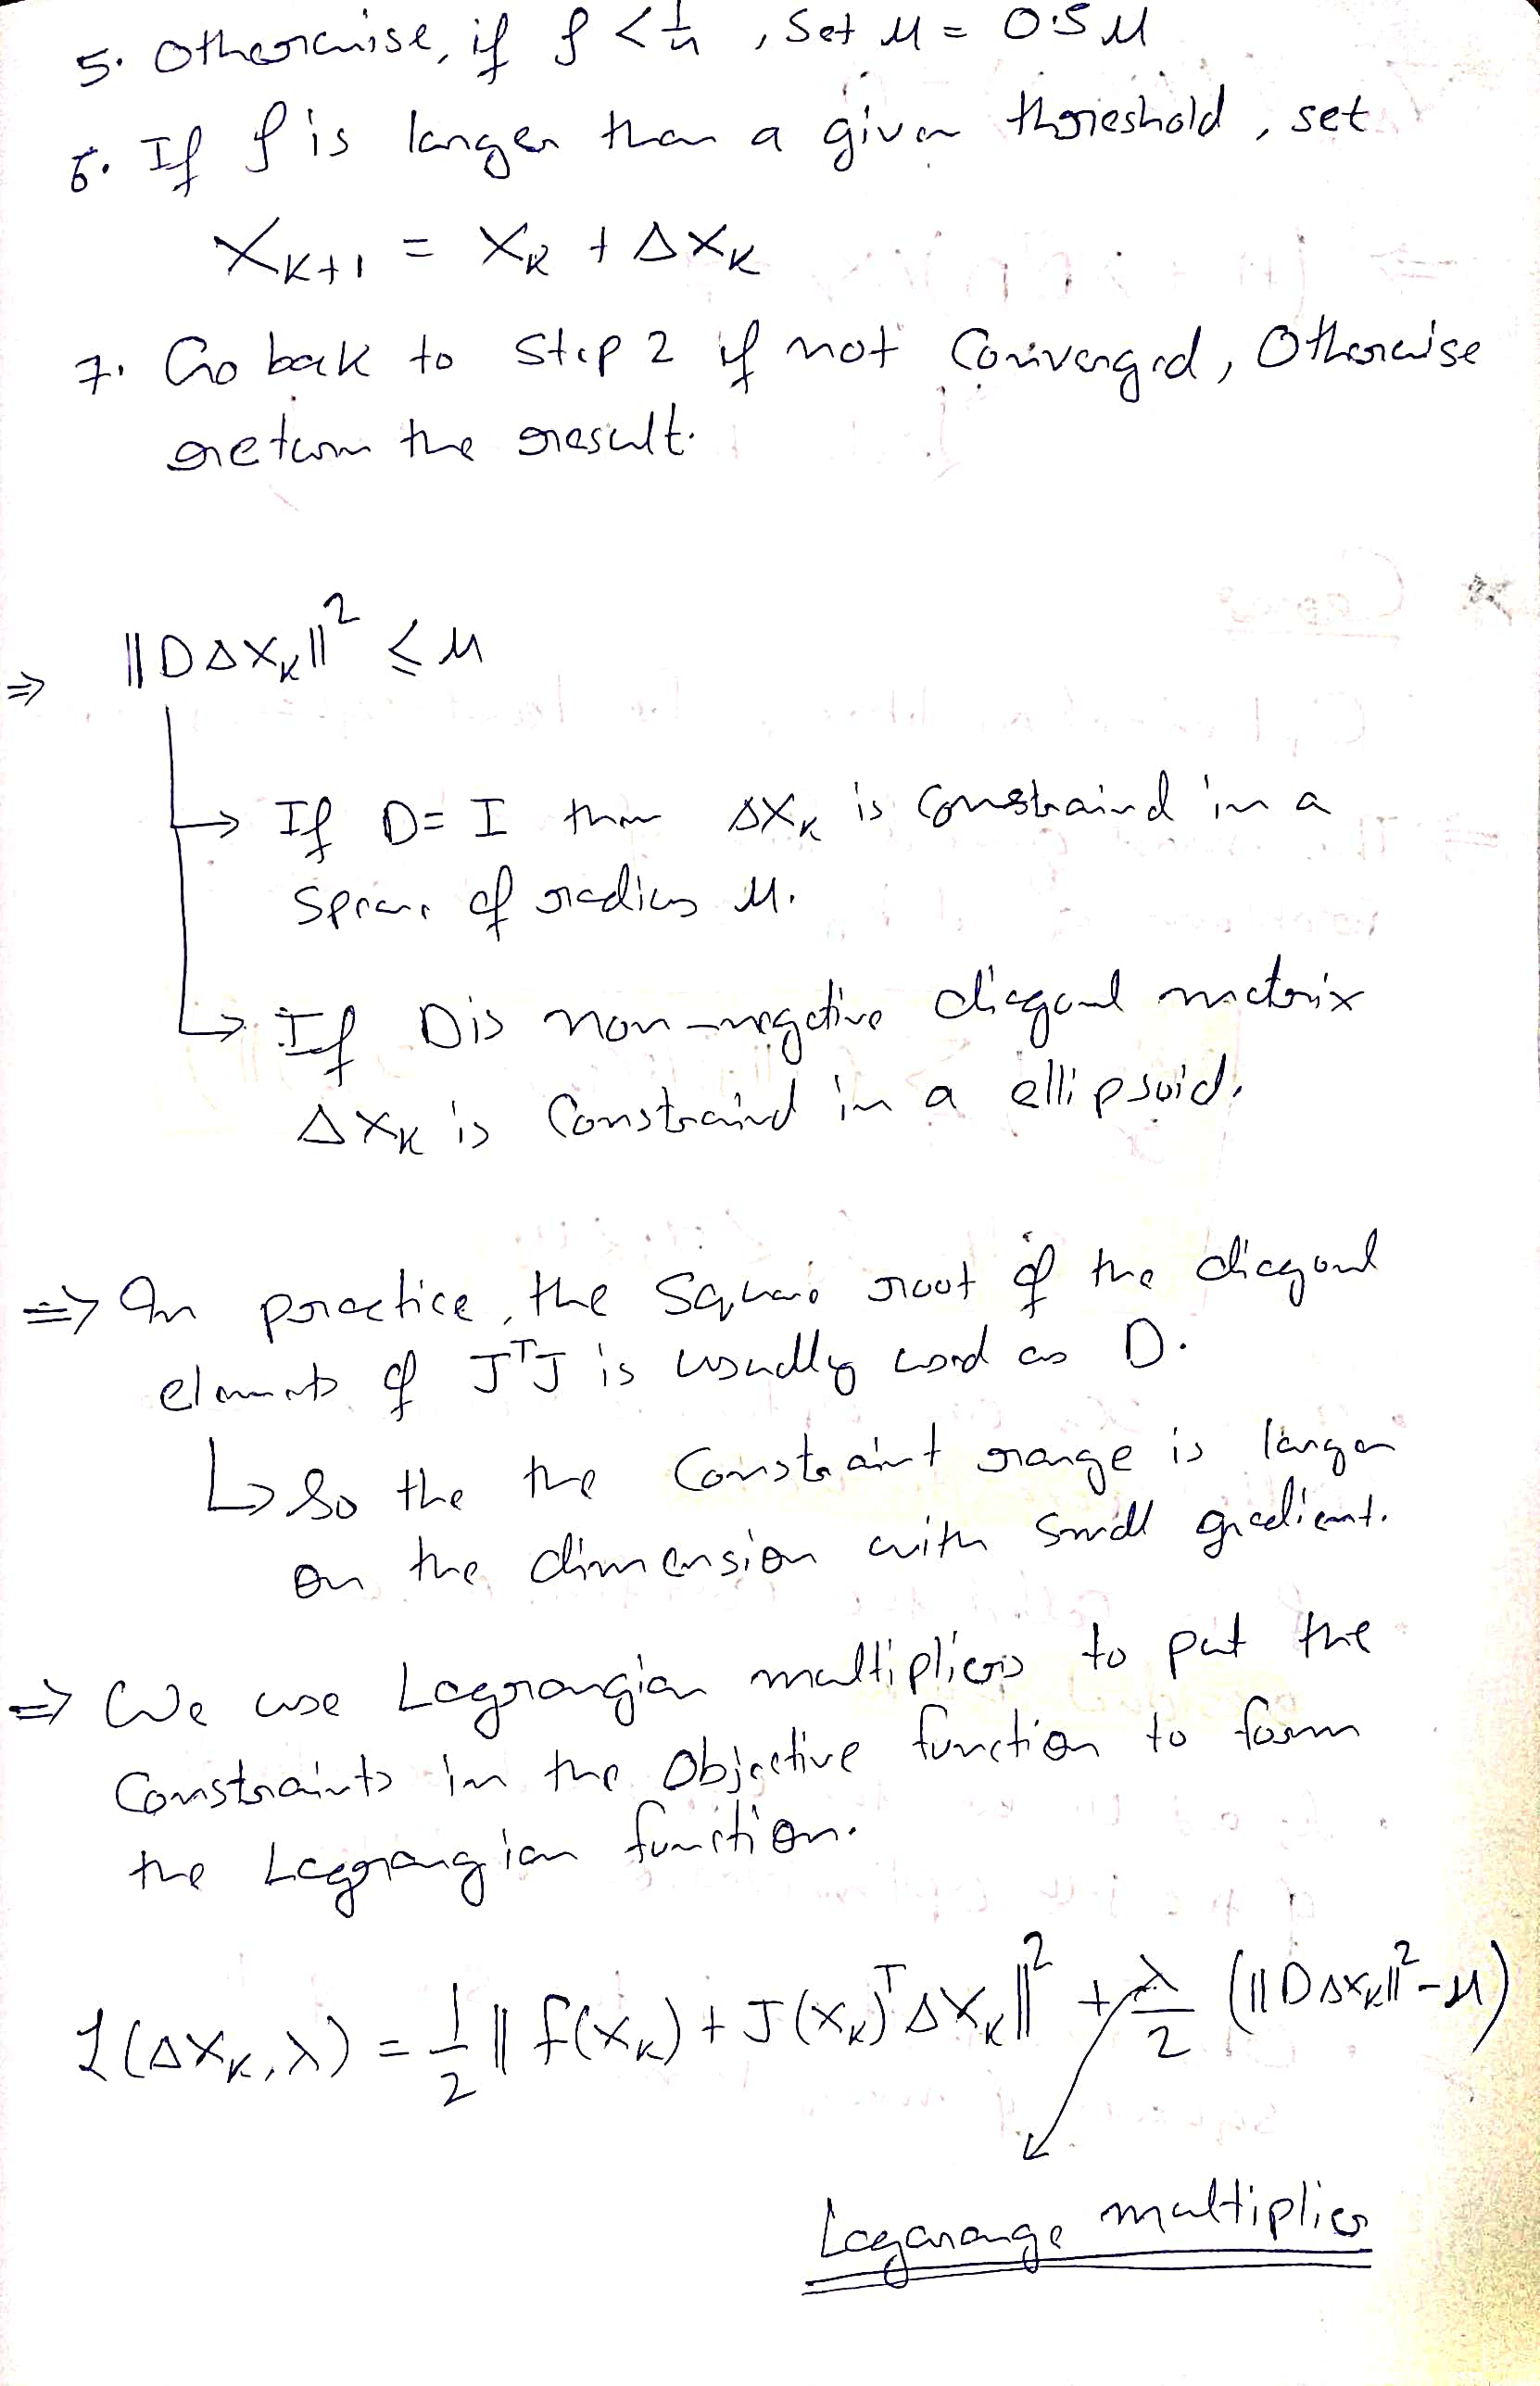 5. Otherwise, if ρ < 1/4 , Set μ = 0.5 μ
6. If ρ is larger than a given threshold , set
X_{K+1} = X_K + ΔX_K
7. Go back to step 2 if not Converged, Otherwise
return the result.
⇒ ||DΔX_K||² ≤ μ
→ If D = I then ΔX_K is Constraind in a
Sprare of radius μ.
→ If D is non-negative diagonal matrix
ΔX_K is Constraind in a ellipsoid.
⇒ In practice, the Square root of the diagonal
elements of JᵀJ is usually used as D.
↳ So the the Constraint range is larger
on the dimension with small gradient.
⇒ We use Lagrangian multipliers to put the
Constraints in the Objective function to form
the Lagrangian function.
L(ΔX_K, λ) = 1/2 || f(X_K) + J(X_K)ᵀ ΔX_K ||² + λ/2 (||DΔX_K||² - μ)
Lagarange multiplier